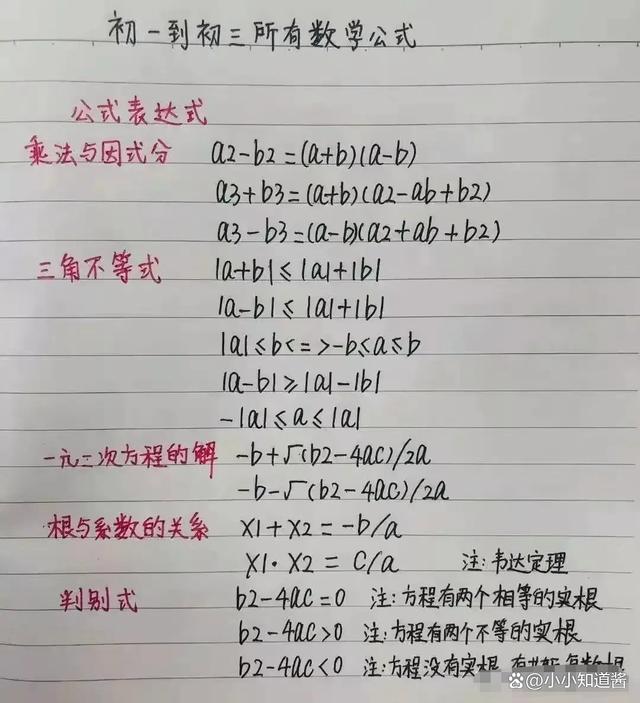 初一到初三所有数学公式
公式表达式
乘法与因式分 a2-b2=(a+b)(a-b)
a3+b3=(a+b)(a2-ab+b2)
a3-b3=(a-b)(a2+ab+b2)
三角不等式 |a+b|≤|a|+|b|
|a-b|≤|a|+|b|
|a|≤b<=>-b≤a≤b
|a-b|≥|a|-|b|
-|a|≤a≤|a|
一元二次方程的解 -b+√(b2-4ac)/2a
-b-√(b2-4ac)/2a
根与系数的关系 X1+X2=-b/a
X1·X2=C/a 注:韦达定理
判别式 b2-4ac=0 注:方程有两个相等的实根
b2-4ac>0 注:方程有两个不等的实根
b2-4ac<0 注:方程没有实根
@小小知道酱